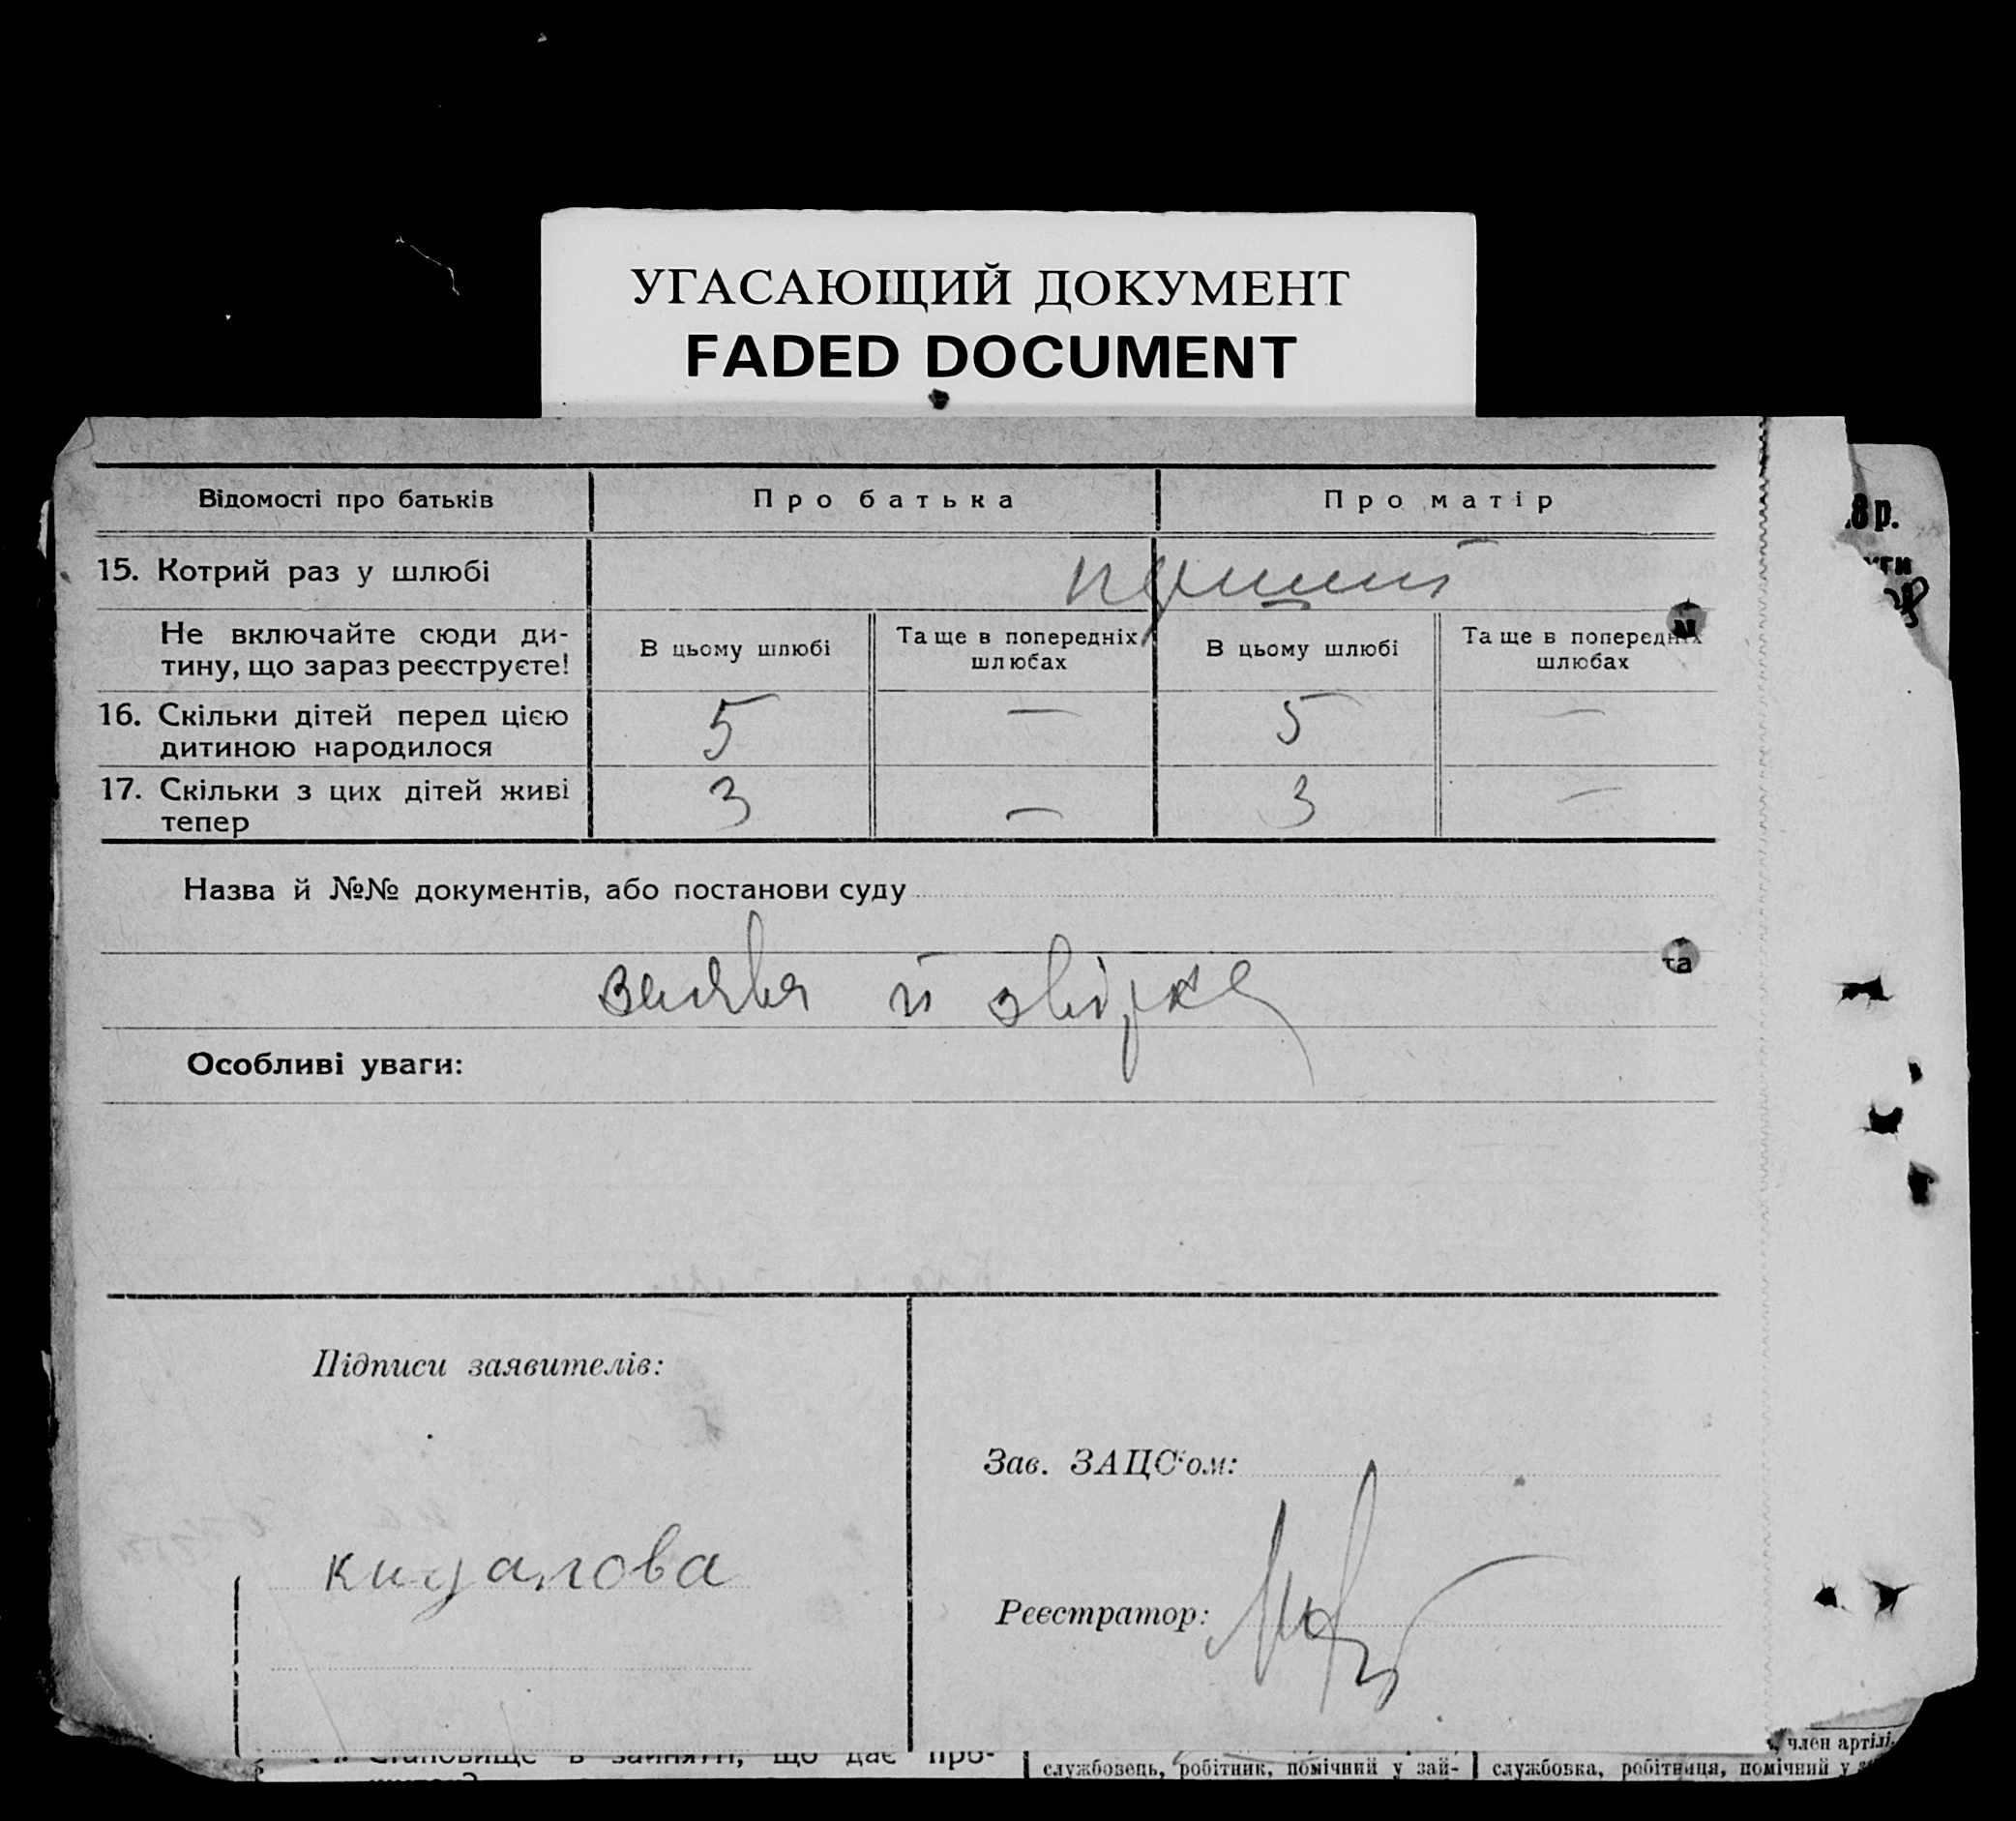 УГАСАЮЩИЙ ДОКУМЕНТ
FADED DOCUMENT
Відомості про батьків Про батька Про матір
8 р.
15. Котрий раз у шлюбі перший
Не включайте сюди ди-
тину, що зараз реєструєте!
В цьому шлюбі Та ще в попередніх шлюбах В цьому шлюбі Та ще в попередніх шлюбах
16. Скільки дітей перед цією
дитиною народилося 5 — 5 —
17. Скільки з цих дітей живі
тепер 3 — 3 —
Назва й №№ документів, або постанови суду
та
заява й звідка
Особливі уваги:
Підписи заявителів:
Зав. ЗАЦС'ом:
Реєстратор:
Становище в занятті, що дає про-
член артілі,
службовець, робітник, помічний у зай- службовка, робітниця, помічний у